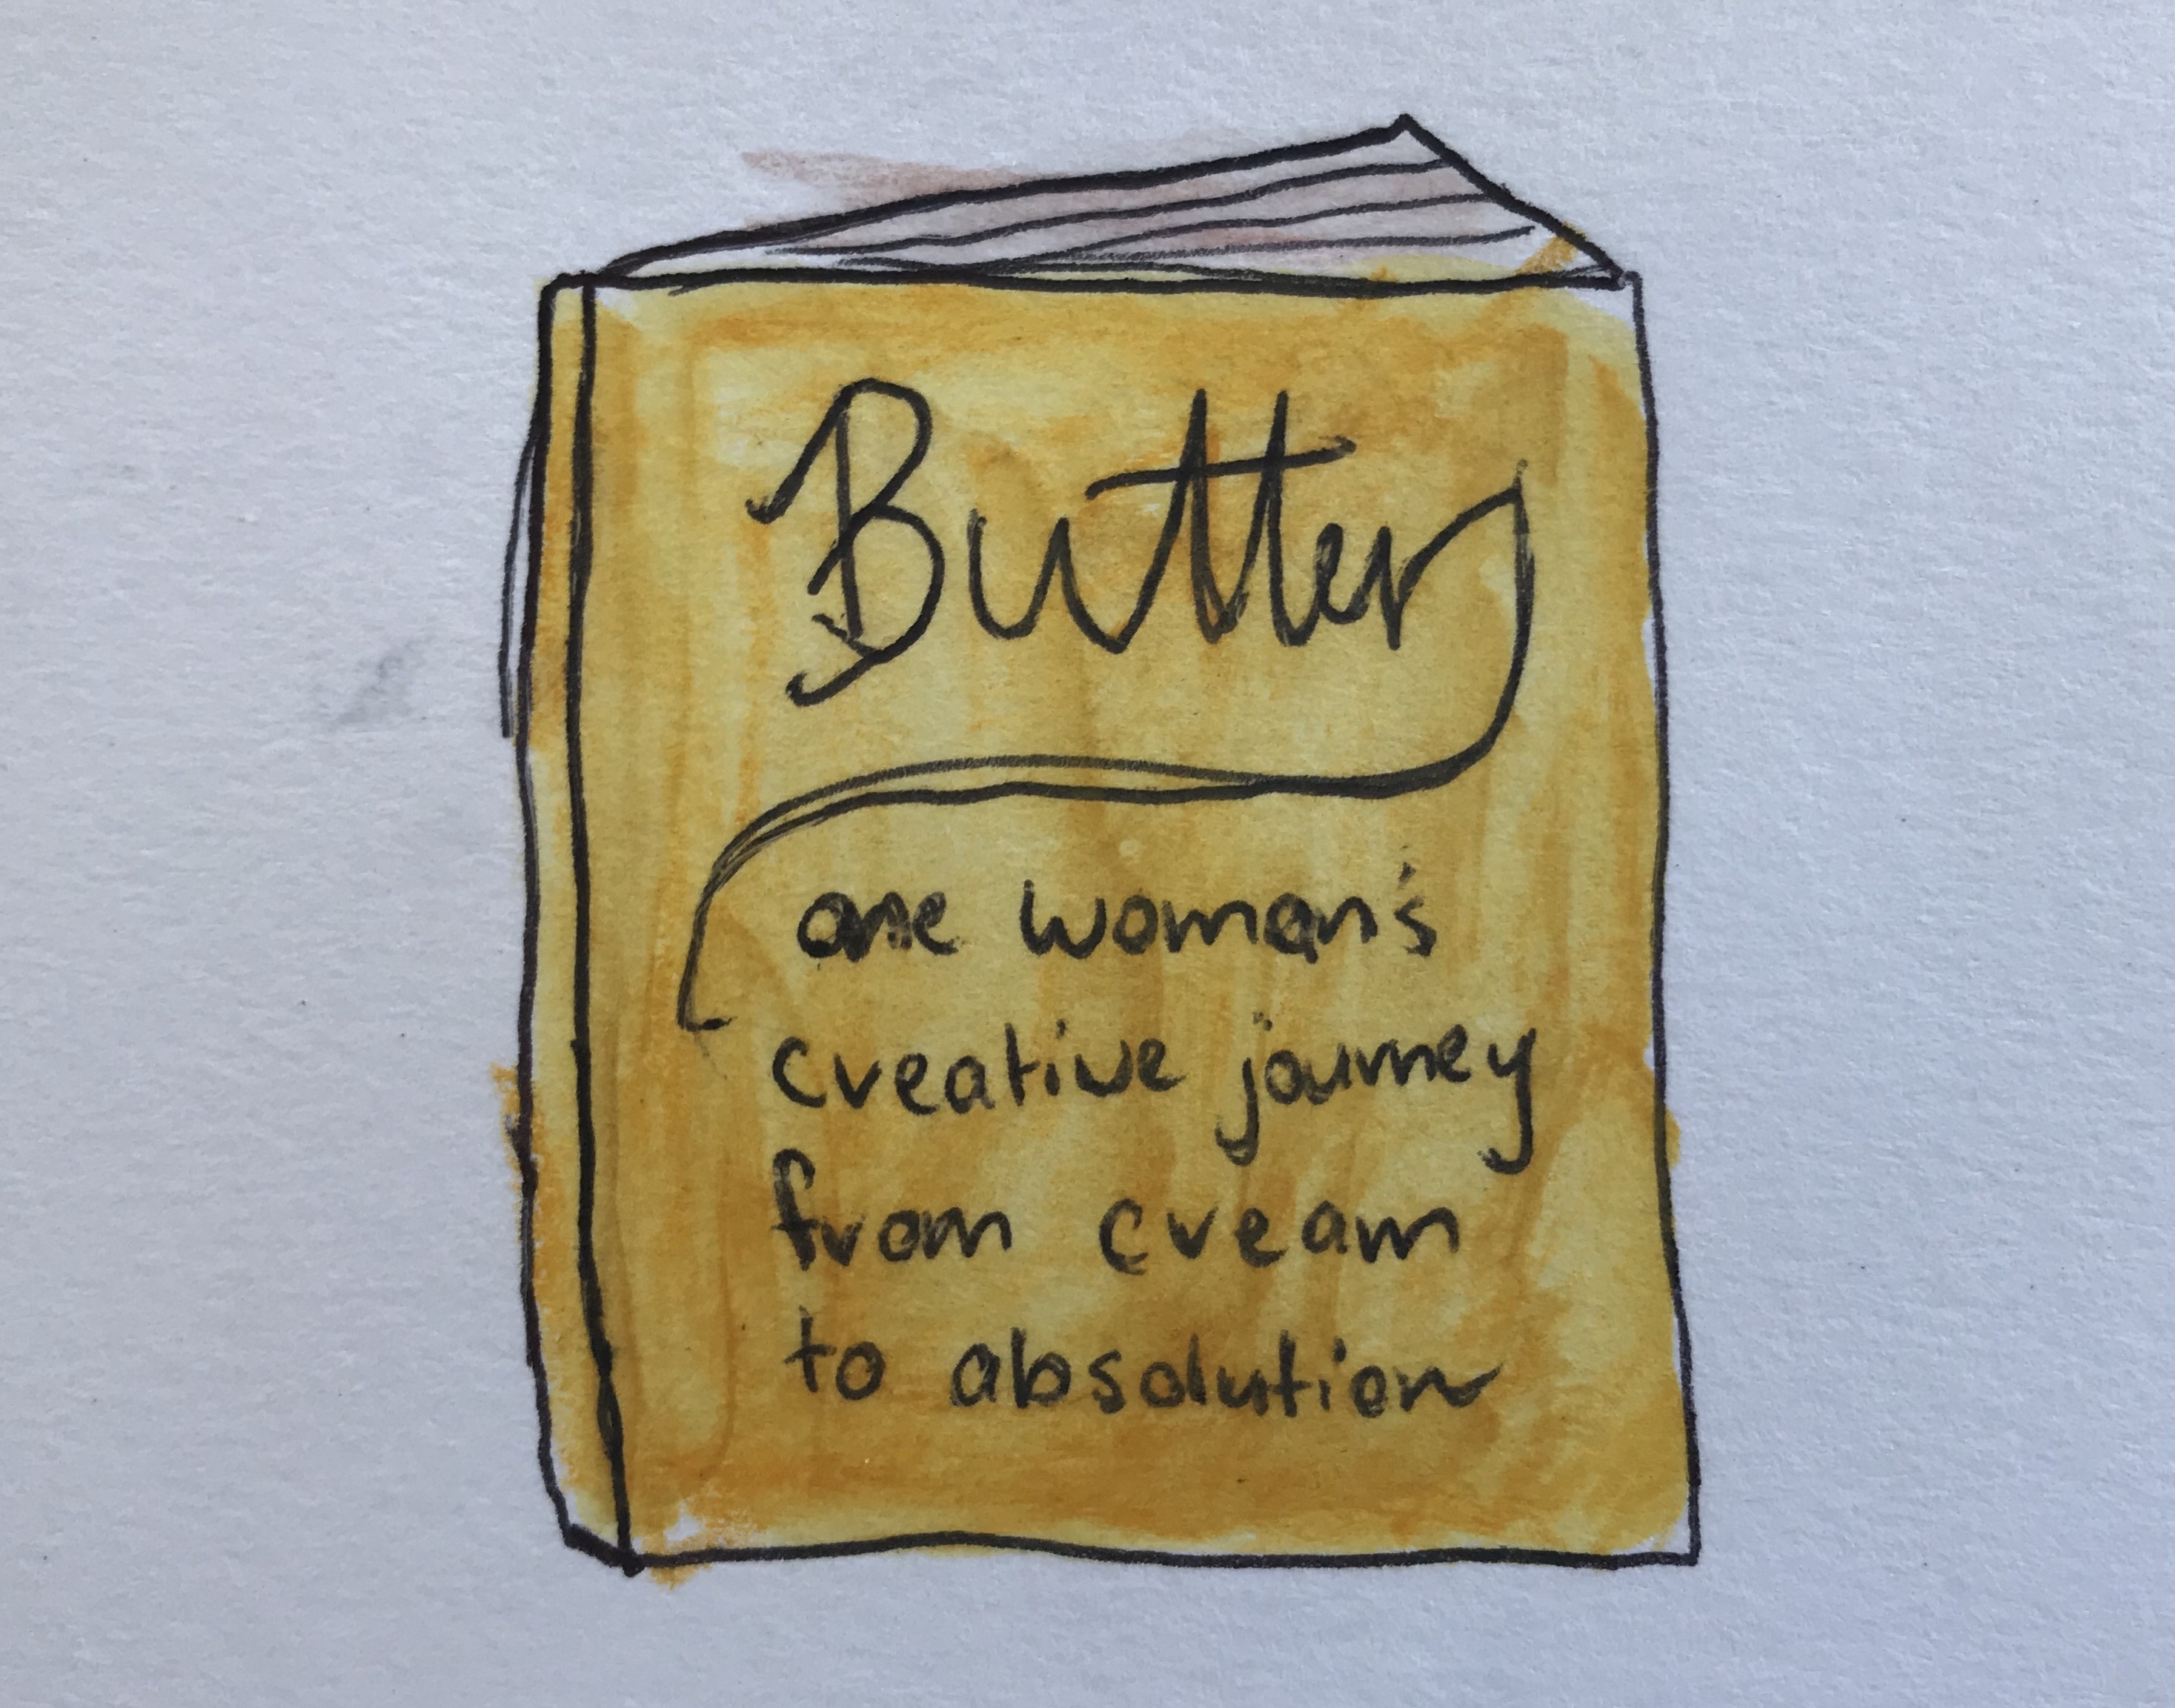 Butter
one woman's
creative journey
from cream
to absolution